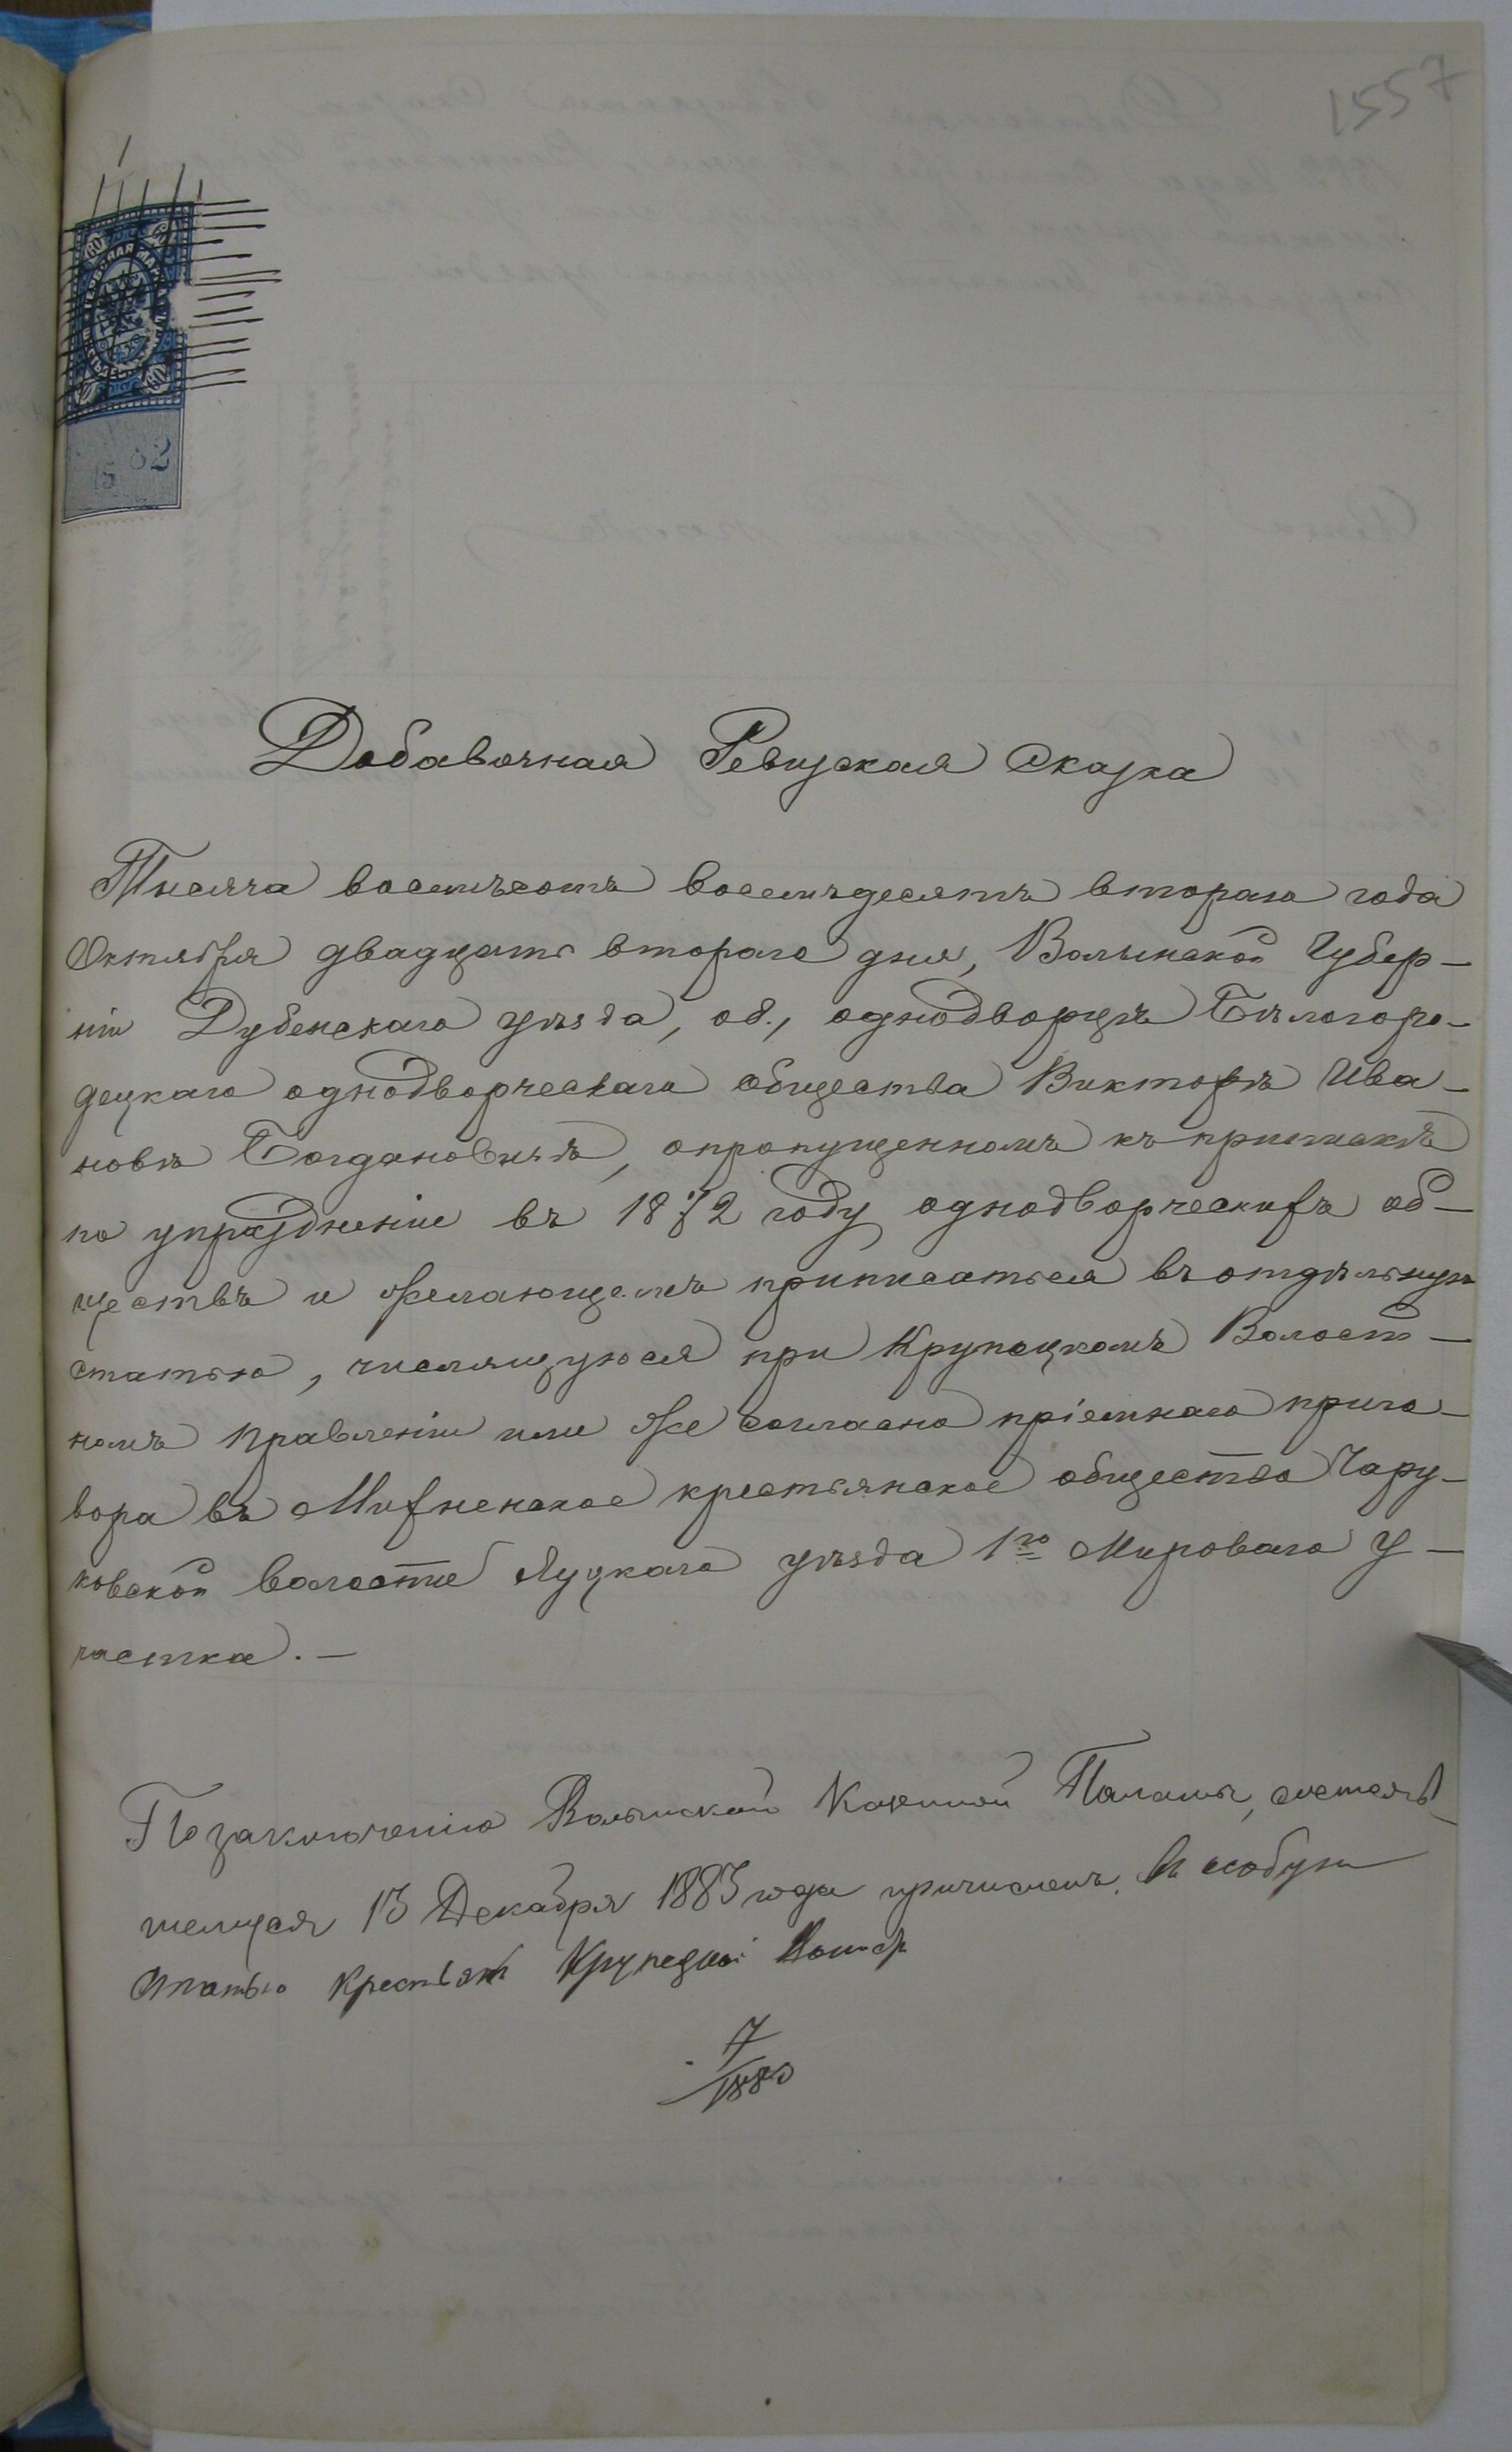 1557
60
60
1882
Добавочная Ревизская Сказка
Тысяча восемъсотъ восемъдесятъ втораго года
Октября двадцать втораго дня, Волынской Губер-
ніи Дубенскаго уѣзда, об., однодворцѣ Бѣлогоро-
децкаго однодворческаго общества Викторѣ Ива-
новѣ Богдановичѣ, опропущенномъ къ припискѣ
по упраздненіи въ 1872 году однодворческихъ об-
ществъ и желающемъ приписаться въ отдѣльную
статью, числящуюся при Крупецкомъ Волост-
номъ Правленіи или же согласно пріемнаго приго-
вора въ Михненское крестьянское общество Чару-
ковской волости Луцкаго уѣзда 1го Мироваго У-
частка.-
По заключенію Волынской Казенной Палаты, состояв-
шемуся 13 Декабря 1883 года причисленъ въ особую
Статью Крестьянъ Крупецкой